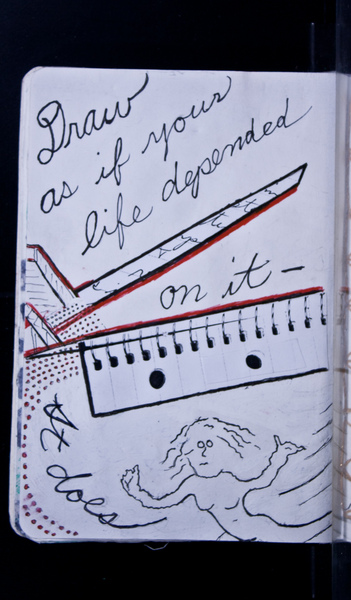 Draw
as if your
life depended
on it –
It does